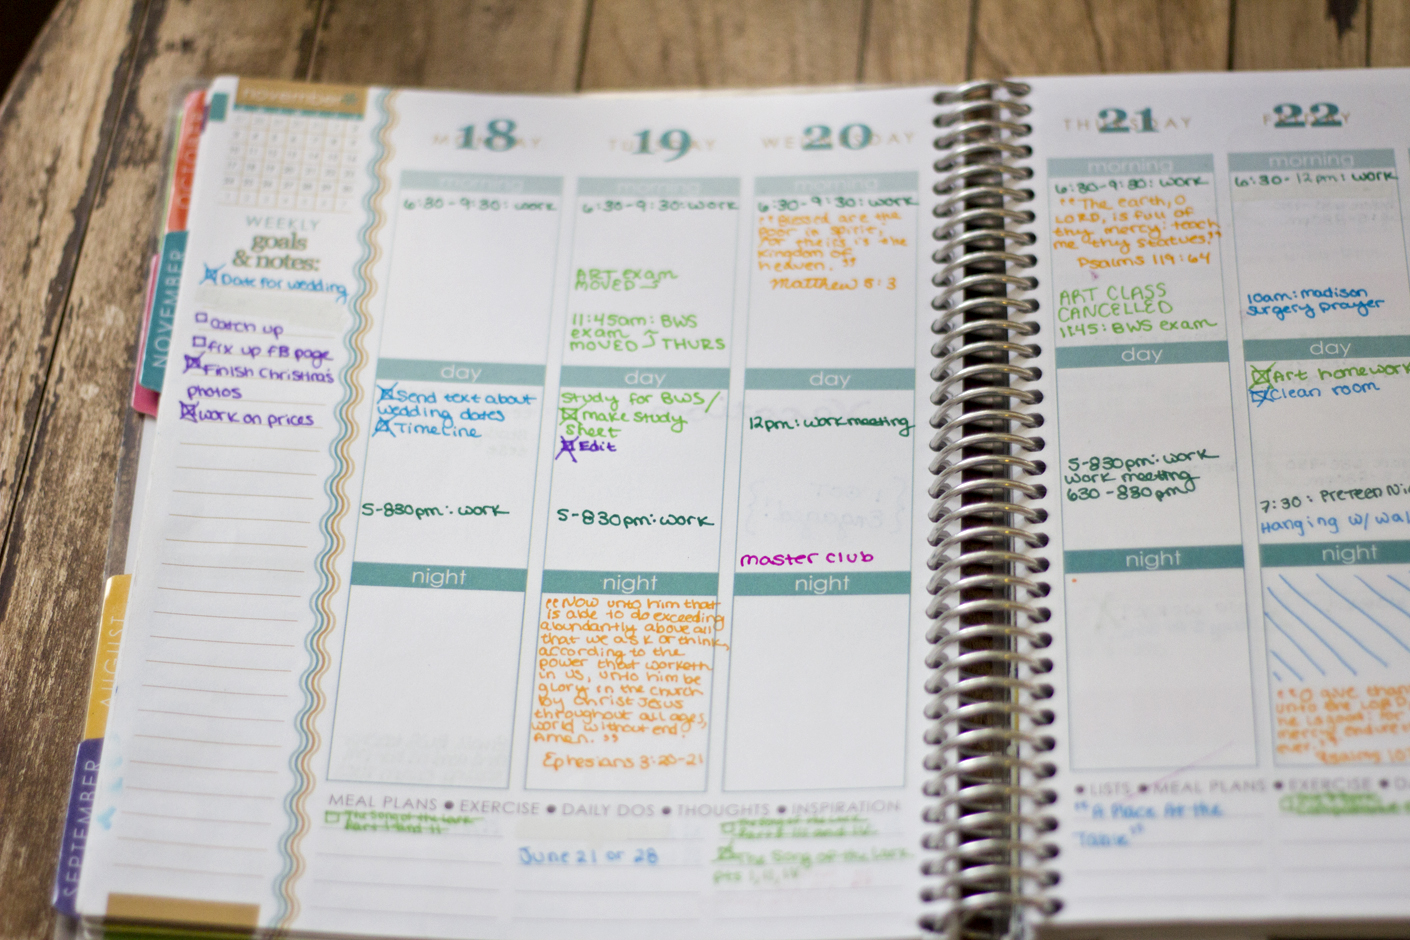 november
OCTOBER
NOVEMBER
AUGUST
SEPTEMBER
WEEKLY
goals
& notes:
Date for wedding
catch up
fix up FB page
Finish Christmas
photos
work on prices
18
MONDAY
morning
6:30-9:30: work
day
Send text about
wedding dates
Timeline
5-830pm: work
night
19
TUESDAY
morning
6:30-9:30: work
ART exam
MOVED
11:45am: BWS
exam
MOVED THURS
day
Study for BWS/
make study
sheet
Edit
5-830pm: work
night
"Now unto him that
is able to do exceeding
abundantly above all
that we ask or think,
according to the
power that worketh
in us, unto him be
glory in the church
by Christ Jesus
throughout all ages,
world without end.
Amen."
Ephesians 3:20-21
20
WEDNESDAY
morning
6:30-9:30: work
"Blessed are the
poor in spirit:
for theirs is the
kingdom of
heaven."
Matthew 5:3
day
12pm: work meeting
master club
night
MEAL PLANS • EXERCISE • DAILY DOS • THOUGHTS • INSPIRATION
The Song of the Lark
Part I and II
June 21 or 28
Part III and IV
The Song of the Lark
21
THURSDAY
morning
6:30-9:30: work
"The earth, O
LORD, is full of
thy mercy: teach
me thy statutes."
Psalms 119:64
ART CLASS
CANCELLED
11:45: BWS exam
day
5-830pm: work
work meeting
630-830pm
night
22
FRIDAY
morning
6:30-12pm: work
10am: madison
surgery prayer
day
Art homework
Clean room
7:30: Preteen
Hanging w/
night
"O give
unto the LORD
he is good: for
mercy
ever."
• LISTS • MEAL PLANS • EXERCISE •
"A Place At the
Table"